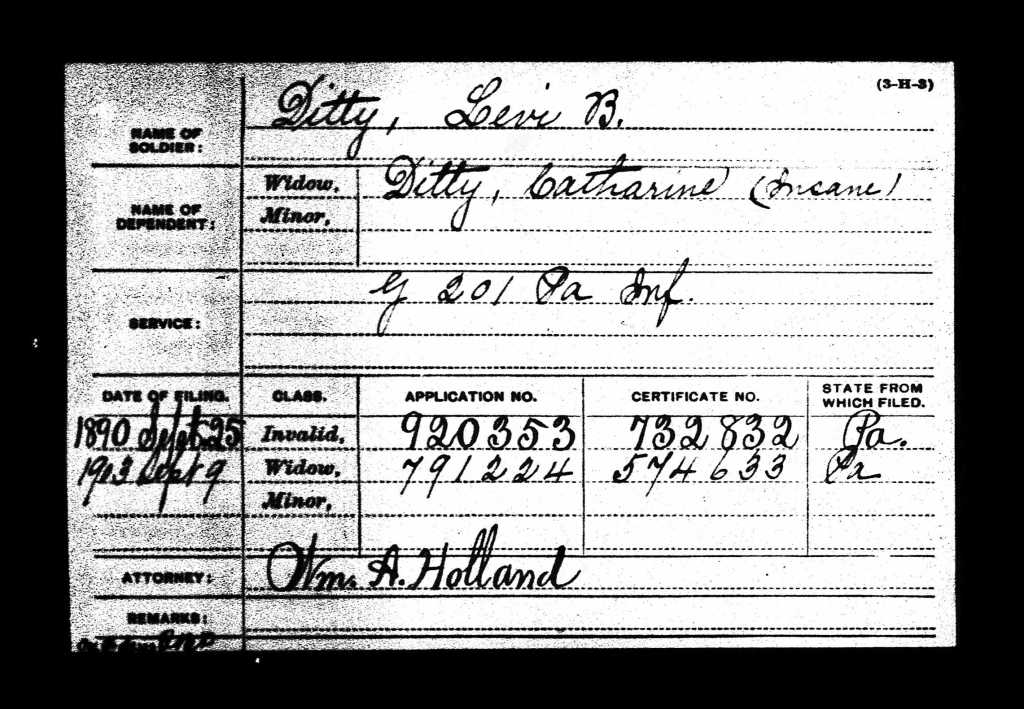 (3-H-3)
NAME OF SOLDIER: Ditty, Levi B.
NAME OF DEPENDENT: Widow, Ditty, Catharine (Insane)
Minor,
SERVICE: G 201 Pa Inf.
DATE OF FILING. CLASS. APPLICATION NO. CERTIFICATE NO. STATE FROM WHICH FILED.
1890 Sept 25 Invalid, 920353 732832 Pa.
1913 Sept 9 Widow, 791224 574633 Pa
Minor,
ATTORNEY: Wm. A. Holland
REMARKS: